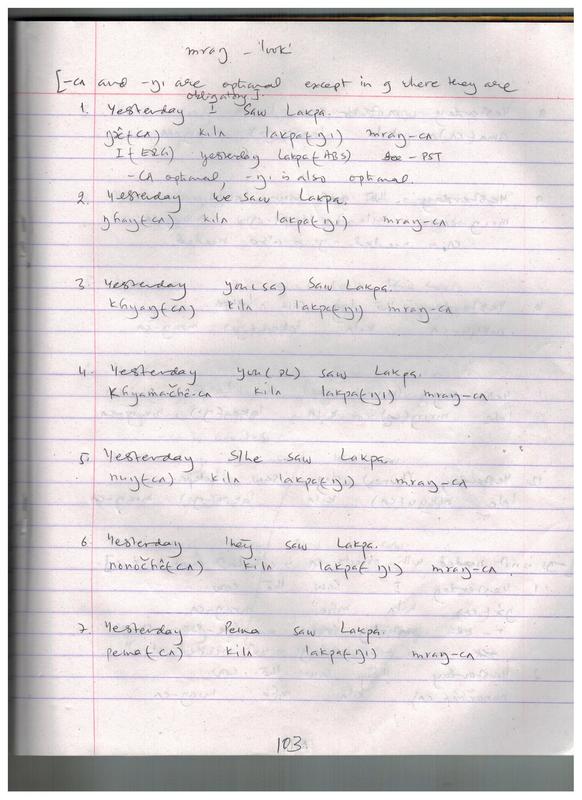 mraŋ - 'look'
[-cʌ and -ŋ1 are optional except in g where they are obligatory].
1. Yesterday I saw Lakpa.
ŋê(cʌ) kilʌ lakpa(-ŋ1) mraŋ-cʌ
I(-ERG) yesterday Lakpa(-ABS) see-PST
-cʌ optional, -ŋ1 is also optional.
2. Yesterday we saw Lakpa.
ŋhay(-cʌ) kilʌ lakpa(-ŋ1) mraŋ-cʌ
3 Yesterday you(SG) saw Lakpa.
khyaŋ(-cʌ) kilʌ lakpa(-ŋ1) mraŋ-cʌ
4. Yesterday you(PL) saw Lakpa.
khyamačhê-cʌ kilʌ lakpa(-ŋ1) mraŋ-cʌ
5. Yesterday S/he saw Lakpa.
nuŋ(-cʌ) kilʌ lakpa(-ŋ1) mraŋ-cʌ
6 Yesterday they saw Lakpa.
nonočhê(-cʌ) kilʌ lakpa(-ŋ1) mraŋ-cʌ.
7. Yesterday Pema saw Lakpa.
pema(-cʌ) kilʌ lakpa(-ŋ1) mraŋ-cʌ
103